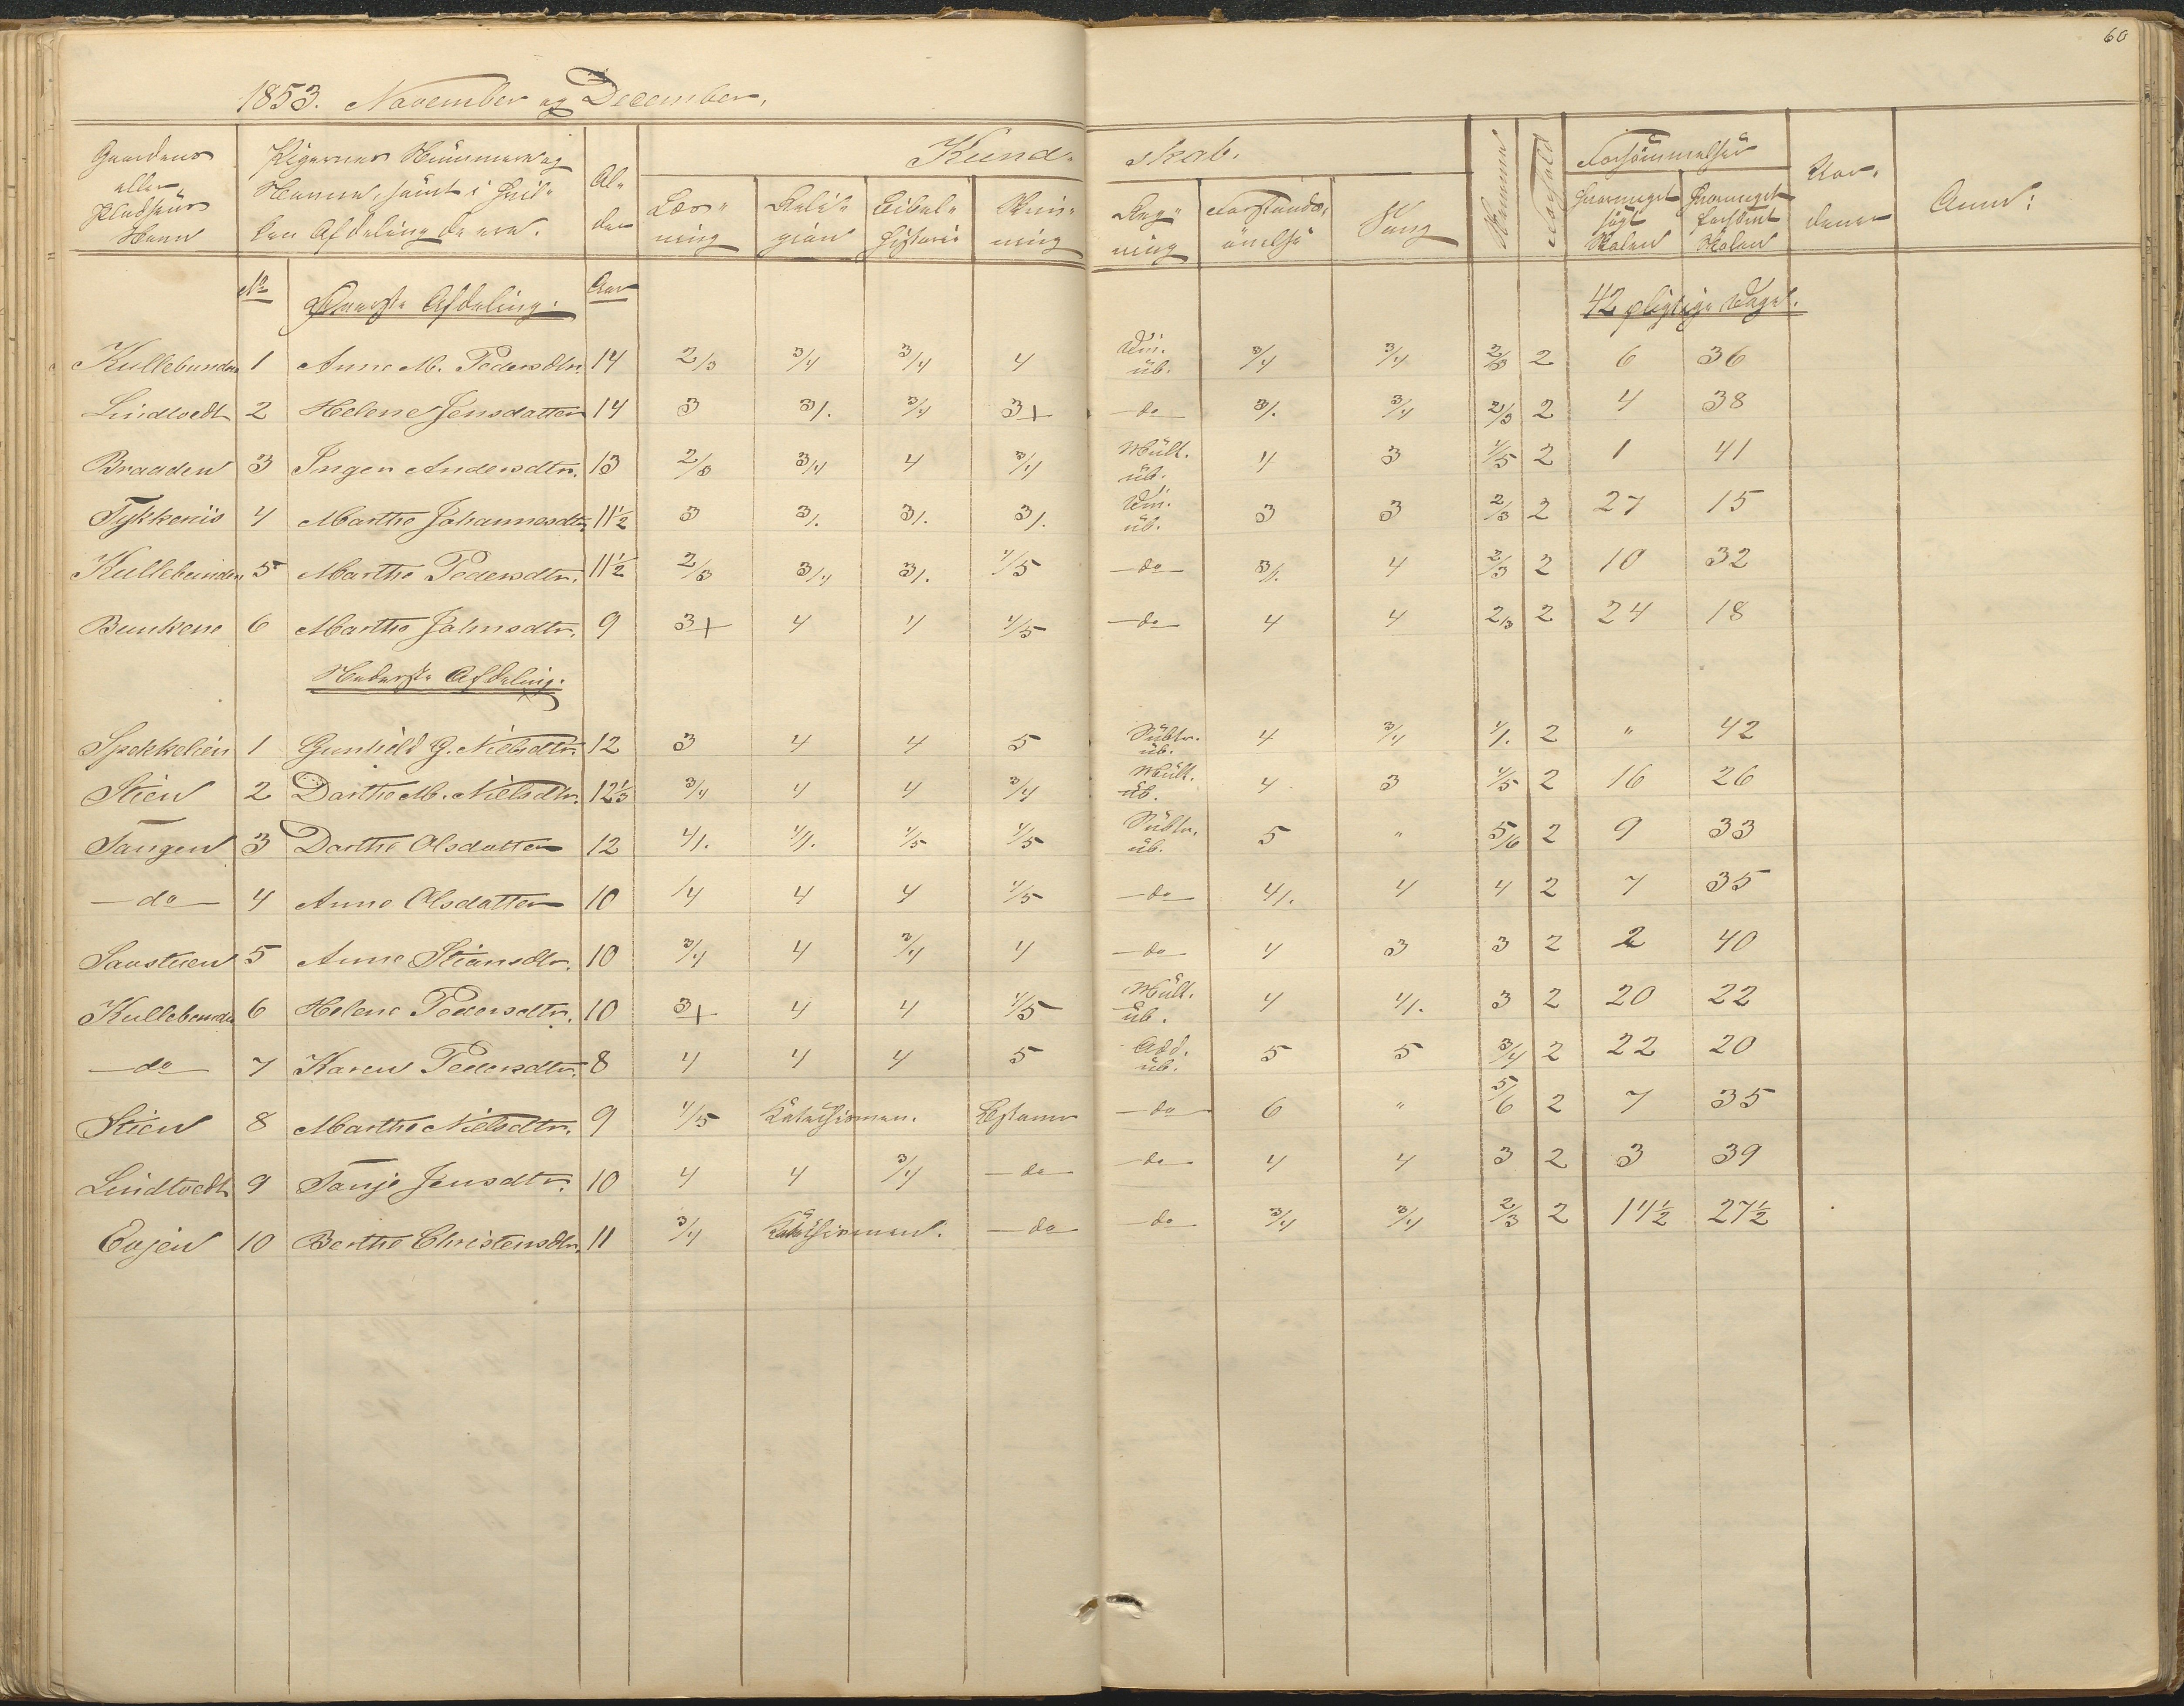 60
1853. November og December.
Gaardens eller Pladsens Navn | Pigernes Nummere og Navne, samt i hvilken Afdeling de ere. | Alder | Kundskab. | Nemme | Forhold | Forsømmelser | Kar- | Anm:
Læsning | Religion | Bibelhistorie | Skrivning | Regning | Forstandsøvelse | Sang | Hvormeget søgt Skolen | Hvormeget forsømt Skolen
No | Øverste Afdeling. | Aar | 42 pligtige Dage.
Kullebunden 1 Anne M. Pedersdtr. 14 2/3 3/4 3/4 4 Div. üb. 3/4 3/4 2/3 2 6 36
Lindtvedt 2 Helene Jensdatter 14 3 3/. 3/4 3+ do 3/. 3/4 2/3 2 4 38
Braaden 3 Inger Andersdtr. 13 2/3 3/4 4 3/4 Mult. üb. 4 3 4/5 2 1 41
Tykkenis 4 Marthe Johannesdtr. 11½ 3 3/. 3/. 3/. Div. üb. 3 3 2/3 2 27 15
Kullebunden 5 Marthe Pedersdtr. 11½ 2/3 3/4 3/. 4/5 do 3/. 4 2/3 2 10 32
Bunkene 6 Marthe Johnsdtr. 9 3+ 4 4 4/5 do 4 4 2/3 2 24 18
Nederste Afdeling.
Spekkelien 1 Gunhild G. Nielsdtr. 12 3 4 4 5 Subtr. üb. 4 3/4 4/. 2 " 42
Stien 2 Dorthe M. Nielsdtr. 12⅓ 3/4 4 4 3/4 Mult. üb. 4 3 4/5 2 16 26
Tangen 3 Dorthe Olsdatter 12 4/. 4/. 4/5 4/5 Subtr. üb. 5 " 5/6 2 9 33
do 4 Anne Olsdatter 10 4 4 4 4/5 do 4/. 4 4 2 7 35
Savstuen 5 Anne Stiansdtr. 10 3/4 4 3/4 4 do 4 3 3 2 2 40
Kullebunden 6 Helene Pedersdtr. 10 3+ 4 4 4/5 Mult. üb. 4 4/. 3 2 20 22
do 7 Karen Pedersdtr. 8 4 4 4 5 Add. üb. 5 5 3/4 2 22 20
Stien 8 Marthe Nielsdtr. 9 4/5 Katechismen. do 6 " 5/6 2 7 35
Lindtvedt 9 Tanje Jensdtr. 10 4 4 3/4 do do 4 4 3 2 3 39
Evjen 10 Berthe Christensdtr. 11 3/4 Katechismen. do do 3/4 3/4 2/3 2 14½ 27½